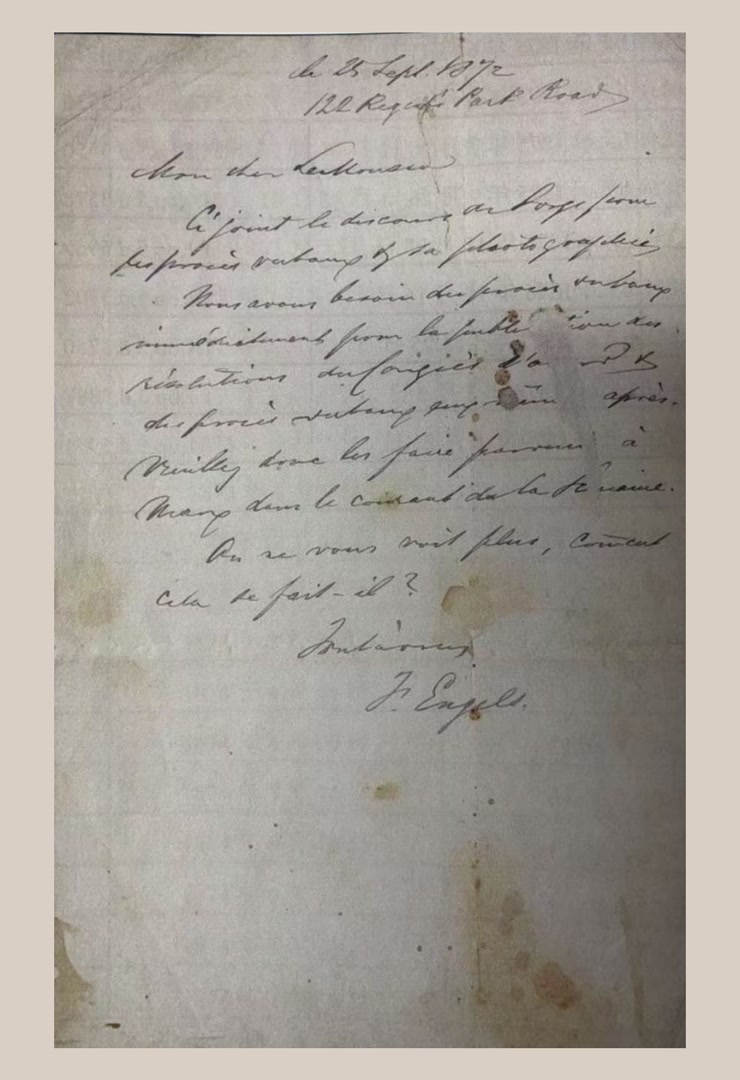 le 25 Sept. 1872
122 Regent's Park Road
Mon cher LeMoussu
Ci joint le discours de Sorge pour
les procès verbaux & sa photographie,
Nous avons besoin des procès verbaux
immédiatement pour la tion des
résolutions du Congrès &
des procès verbaux eux-mêmes après.
Veuillez donc les faire parvenir à
Marx dans le courant de la
On ne vous voit plus, coment
cela se fait-il?
F. Engels.